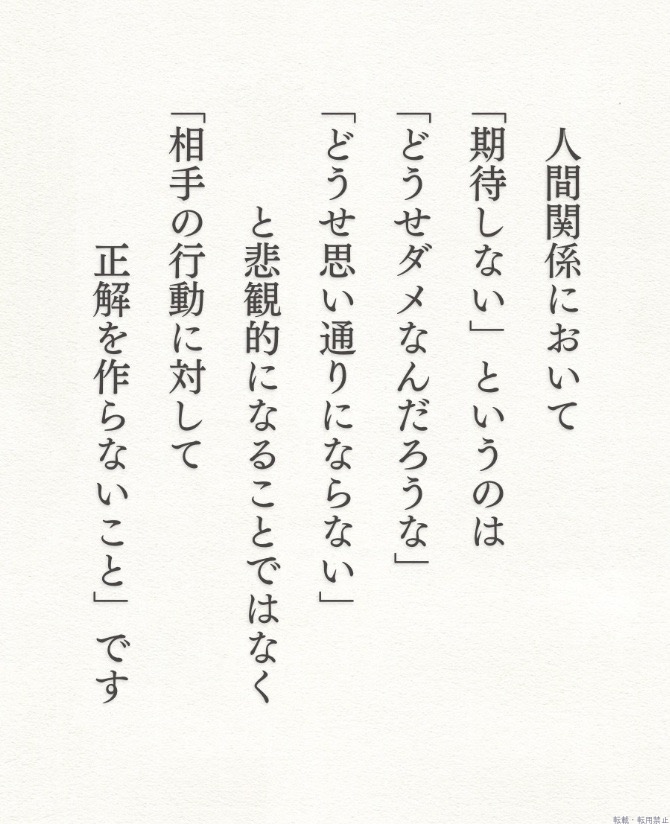 人間関係において
「期待しない」というのは
「どうせダメなんだろうな」
「どうせ思い通りにならない」
と悲観的になることではなく
「相手の行動に対して
正解を作らないこと」です
転載・転用禁止